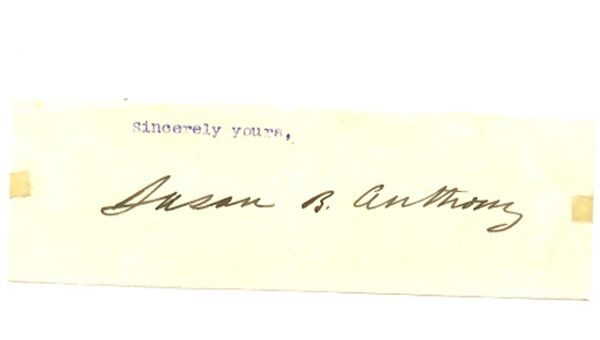 Sincerely yours,
Susan B. Anthony